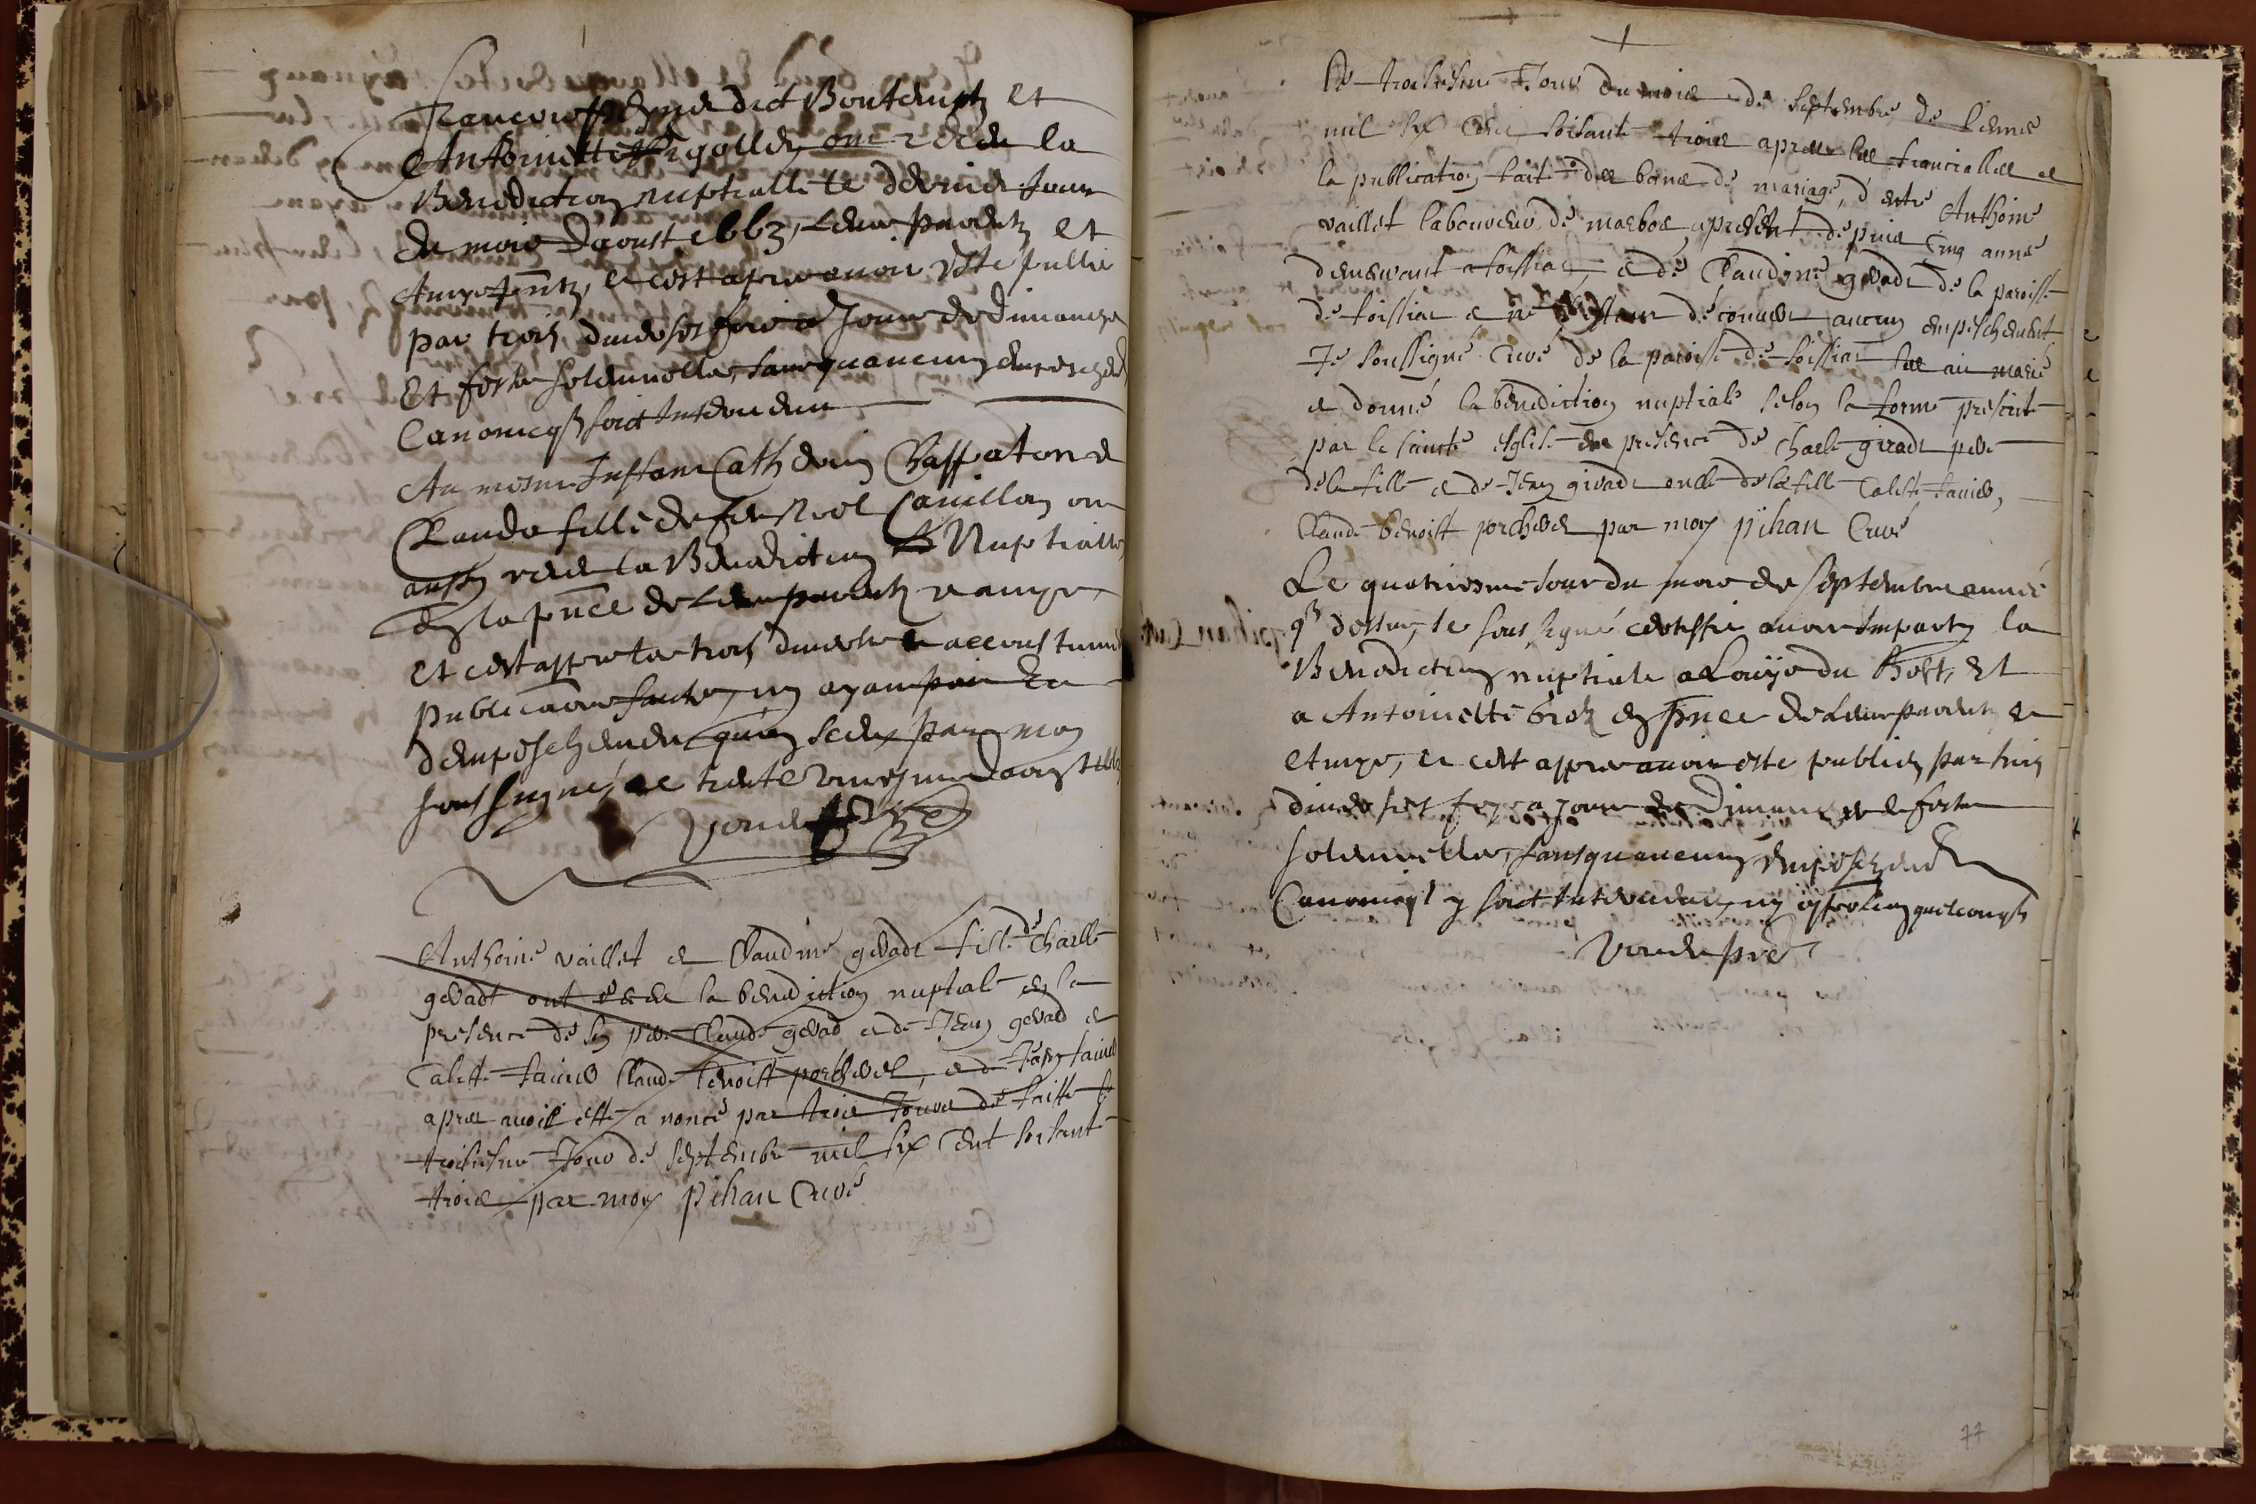 Benedict Bontempz et
Anthoinette Rigollet, ont receu la
Benediction nuptialle le dernier Jour
du mois d'aoust 1663, Leurs parentz et
et c'est apres avoir esté publié
par trois diverses fois a Jours de dimanche
Et festes solemnelles, sans qu'aucung empeschemt
Canonicq soict Intervenu
Au mesme Instant Catherin
Clauda fille de feu Noel Cavillon ont
aussy receu la Benediction Nuptialle,
En la pnce de Leurs parentz et amys,
Et c'est appres les trois diverses accoustumé
publications faictes, ny ayant point Eu
d'empeschement par moy
soussigné, ce trente uniesme d'aoust 1663
Anthoine vaillet et Claudine geradt fille de Charlle
geradt ont receu la benediction nuptiale en la
presence de son pere Claude gerad et de Jean gerad et
Claude benoist porcherel, et de Jean
apres avoir este a noncé par trois Jours de faitte le
troisiesme Jour de septembre mil six cent soisante
trois par moy pihan Curé
Le troisiesme Jour du mois de septembre de l'ennee
mil six cens soisante trois apres les fiancialles et
la publication fait des bans de mariage, d'entre Anthoine
vaillet laboureur de marbos, apresent depuis cinq anné
demeurant a foissiac, et de Claudine geradt de la paroisse
de foissiac et ne decouver aucun empeschement
Je soussigné Curé de la paroisse de foissiac les ai marié
et donné la benediction nuptiale selon la forme prescrit
par la saincte esglise en presence de Charle giradt pere
de la fille et de Jean giradt oncle de la fille
Claude benoist porcherel par moy pihan Curé
Le quatriesme Jour du mois de septembre année
q dessus, Je soussigné certiffie avoir Imparty la
Benediction nuptiale a Louys du Bost, Et
a Antoinette en pnce de Leurs parentz et
et amys, et c'est appres avoir esté publiez par trois
diverses foys a Jours de Dimanche et festes
solemnelles, sans qu'aucung empeschemt
Canonicq y soict Intervenu, ny opposition quelconque
77